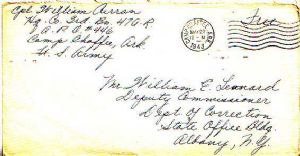 Cpl. William Curran
Hq. Co. 3rd. Bn. 47 G.R
A.P.O. #446
Camp Chaffee, Ark.
U.S. Army
1943
Free
Mr. William E. Leonard
Deputy Commissioner
Dept of Correction
State Office Bldg.
Albany, N.Y.